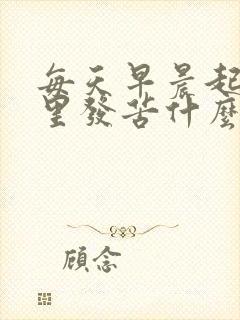 每天早晨起
里發苦什麼
顾念